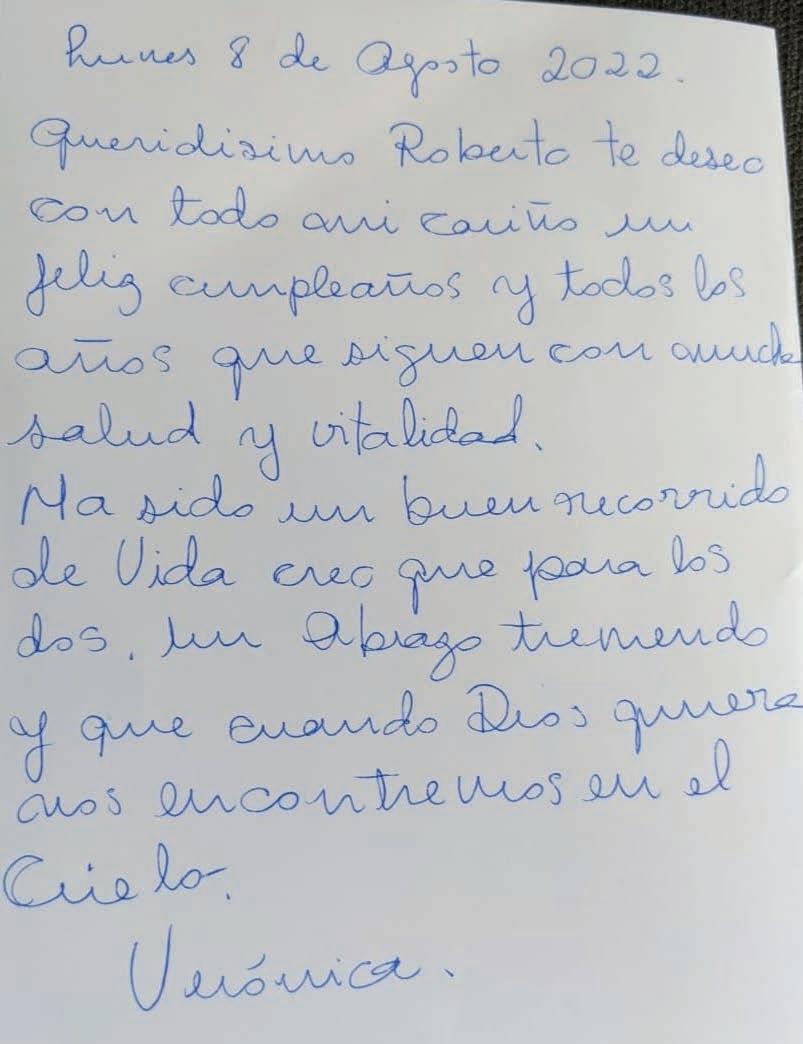 Lunes 8 de Agosto 2022.
Queridisimo Roberto te deseo
con todo mi cariño un
feliz cumpleaños y todos los
años que siguen con mucha
salud y vitalidad.
Ha sido un buen recorrido
de Vida creo que para los
dos. Un Abrazo tremendo
y que cuando Dios quiera
nos encontremos en el
Cielo.
Verónica.